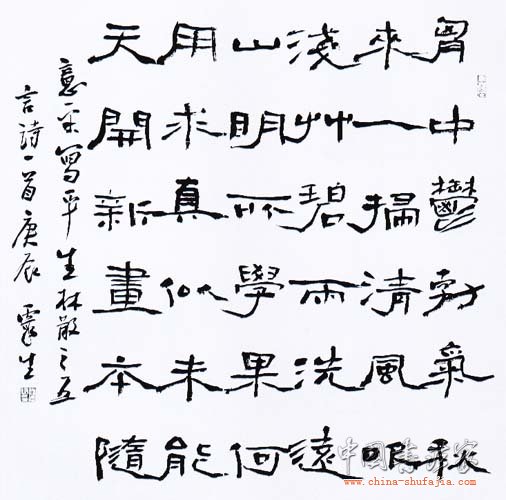 胷中鬱勃氣秋
來一掃清風眠
淺艸碧雨洗遠
山明所學果何
用求真似未能
天開新畫本隨
意寫平生林散之五
言詩一首庚辰 生
中國書法家
www.china-shufajia.com